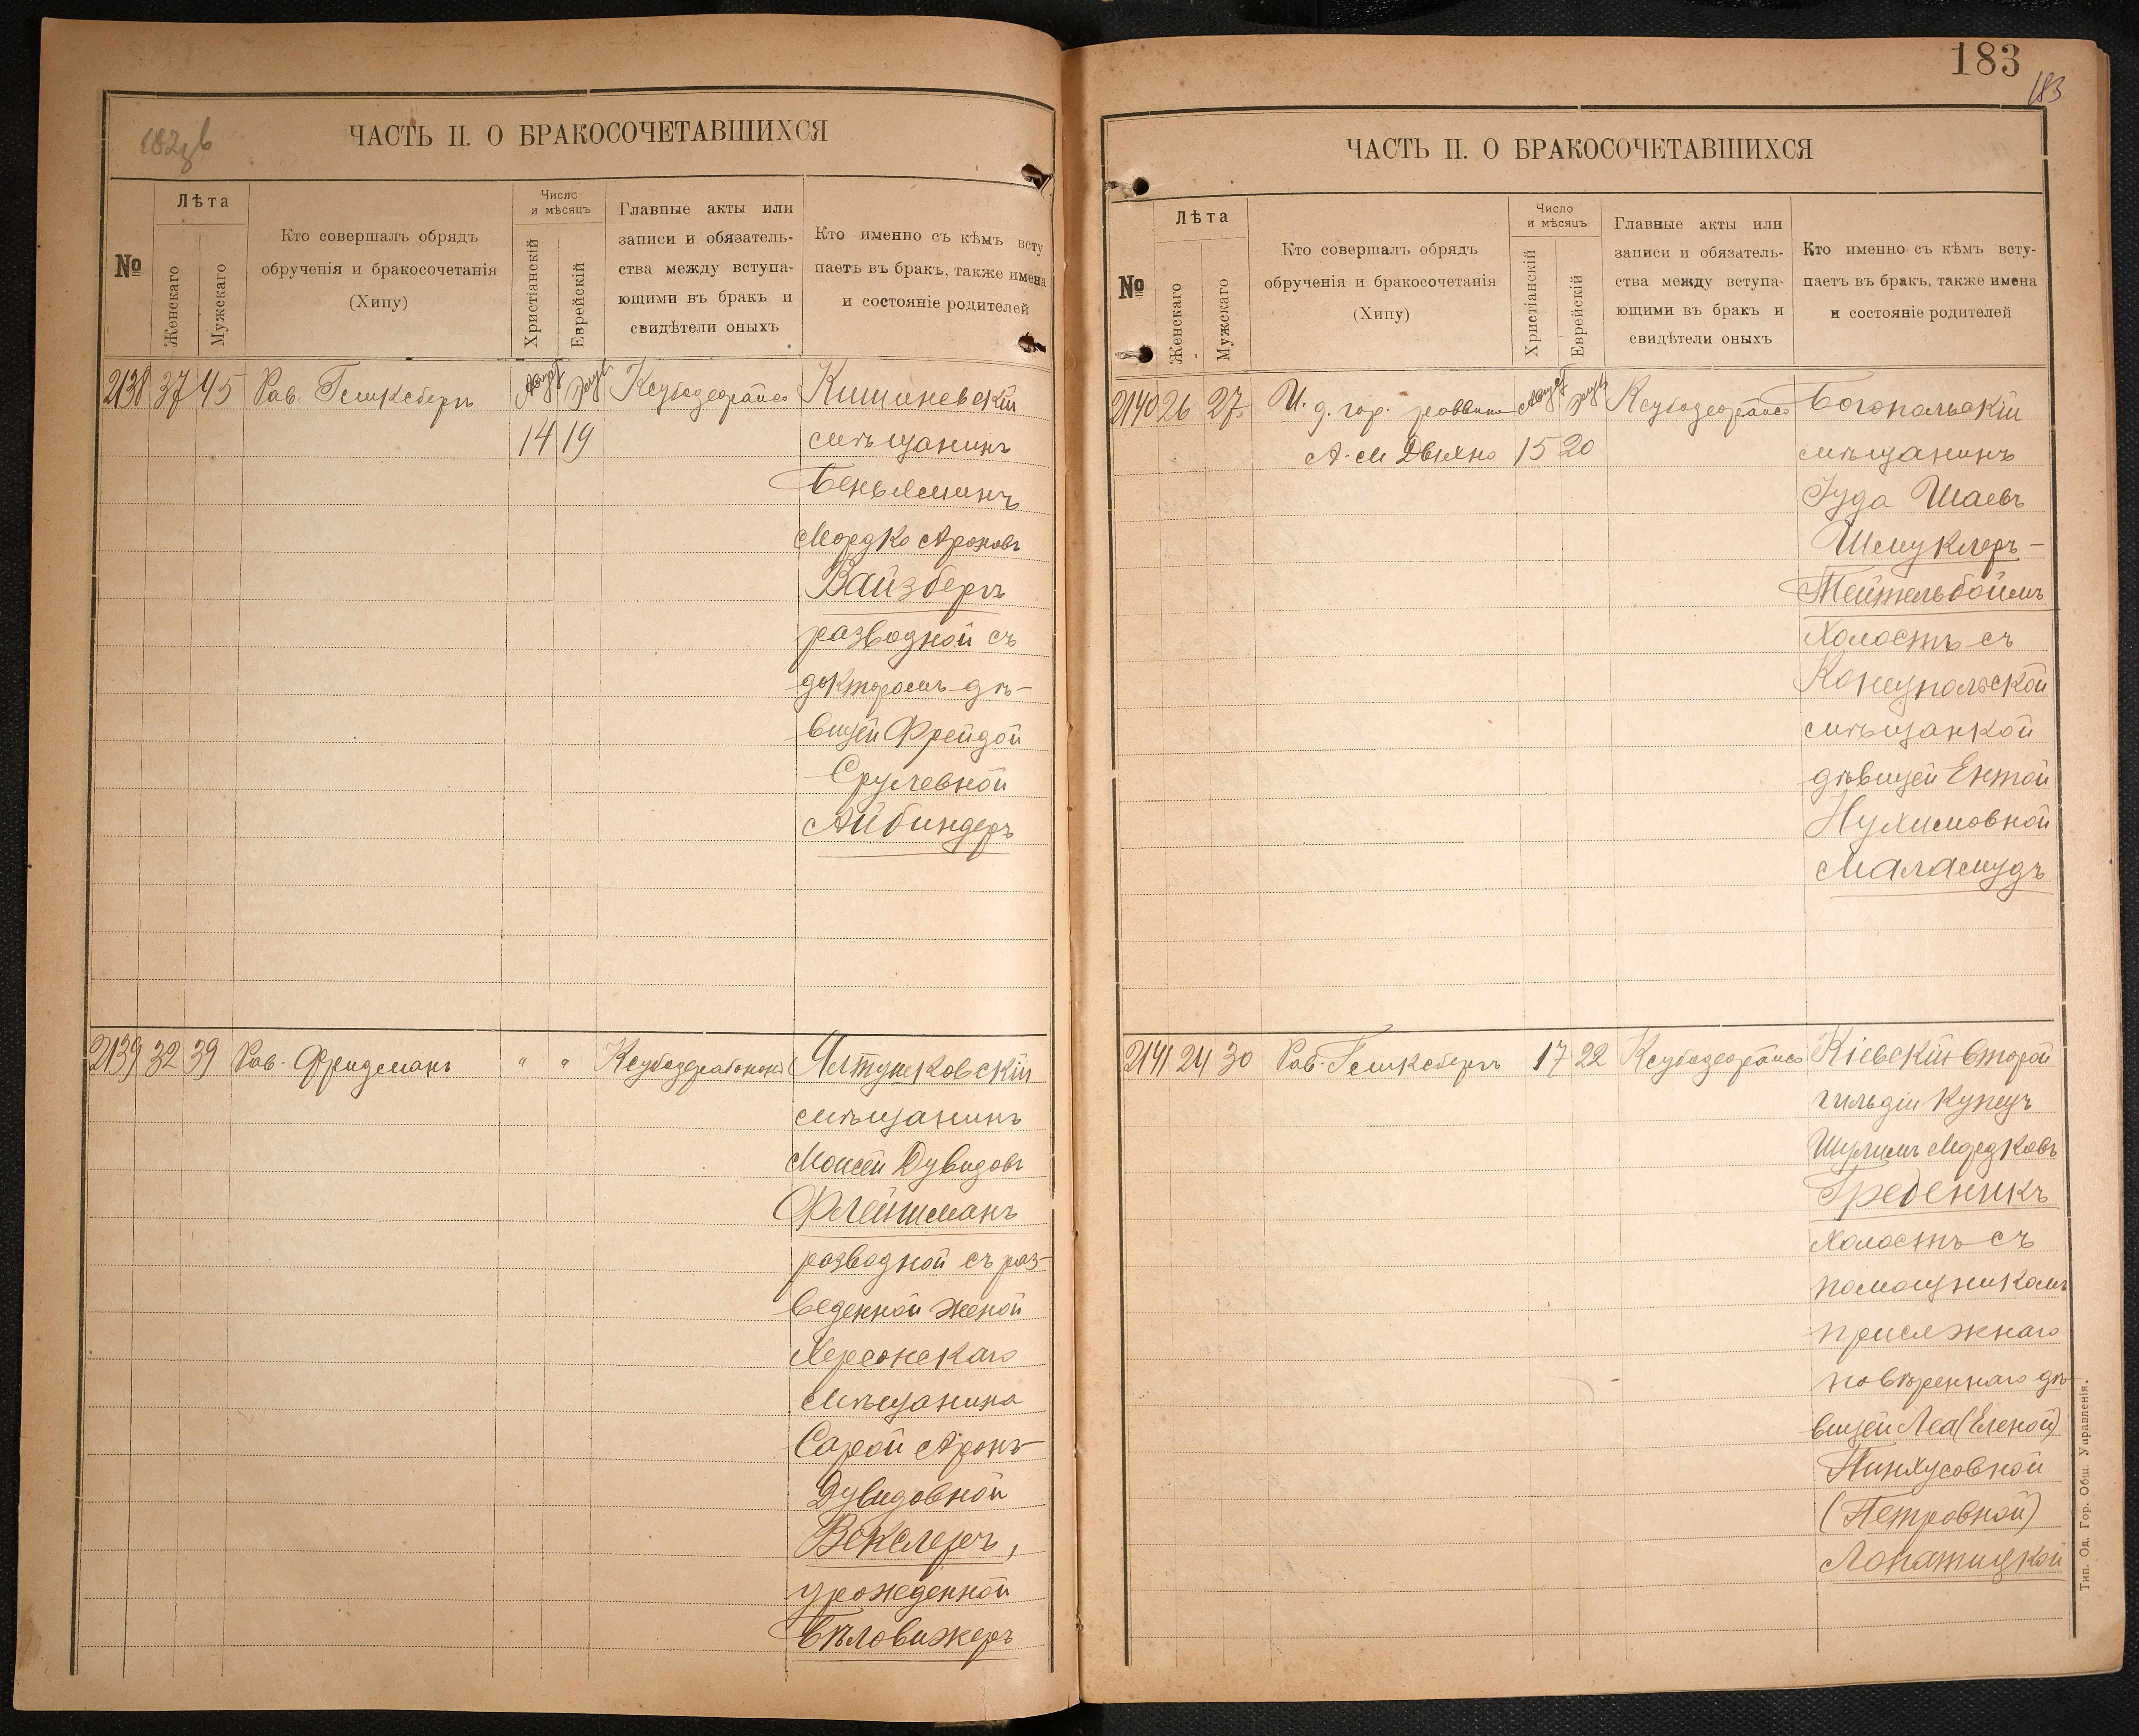 182об
ЧАСТЬ II. О БРАКОСОЧЕТАВШИХСЯ
№
Лѣта
Женскаго
Мужскаго
Кто совершалъ обрядъ
обрученія и бракосочетанія
(Хипу)
Число
и мѣсяцъ
Христіанскій
Еврейскій
Главные акты или
записи и обязатель-
ства между вступа-
ющими въ бракъ и
свидѣтели оныхъ
Кто именно съ кѣмъ всту
паетъ въ бракъ, также имена
и состояніе родителей
2138 37 45 Рав. Гинксбергъ Август Элулъ Кишиневскій
14 19 мѣщанинъ
Беньяминъ
Мордко Ароновъ
Вайзбергъ
разводной съ
докторомъ дѣ-
вицей Фрейдой
Срулевной
Айбиндеръ
2139 32 39 Рав. Фридманъ " " Ялтушковскій
мѣщанинъ
Моисей Дувидовъ
Флейшманъ
разводной съ раз-
веденной женой
Херсонскаго
мѣщанина
Сарой Аронъ-
Дувидовной
Векслеръ,
урожденной
Бѣловижеръ
183
183
ЧАСТЬ II. О БРАКОСОЧЕТАВШИХСЯ
№
Лѣта
Женскаго
Мужскаго
Кто совершалъ обрядъ
обрученія и бракосочетанія
(Хипу)
Число
и мѣсяцъ
Христіанскій
Еврейскій
Главные акты или
записи и обязатель-
ства между вступа-
ющими въ бракъ и
свидѣтели оныхъ
Кто именно съ кѣмъ всту-
паетъ въ бракъ, также имена
и состояніе родителей
2140 26 27 И. д. гор. раввина Август Элулъ Богопольскій
А. М Двихно 15 20 мѣщанинъ
Іуда Шаевъ
Шмуклеръ-
Тейтельбоймъ
холостъ съ
Конецпольской
мѣщанкой
дѣвицей Ентой
Нухимовной
Маламудъ
2141 24 30 Рав. Гинксбергъ 17 22 Кіевскій второй
гильдіи купецъ
Шулимъ Мордковъ
Гребеникъ
холостъ съ
помощникомъ
присяжнаго
повѣреннаго дѣ-
вицей Леа (Еленой)
Пинхусовной
(Петровной)
Лопатицкой
Тип. Од. Гор. Общ. Управленія.